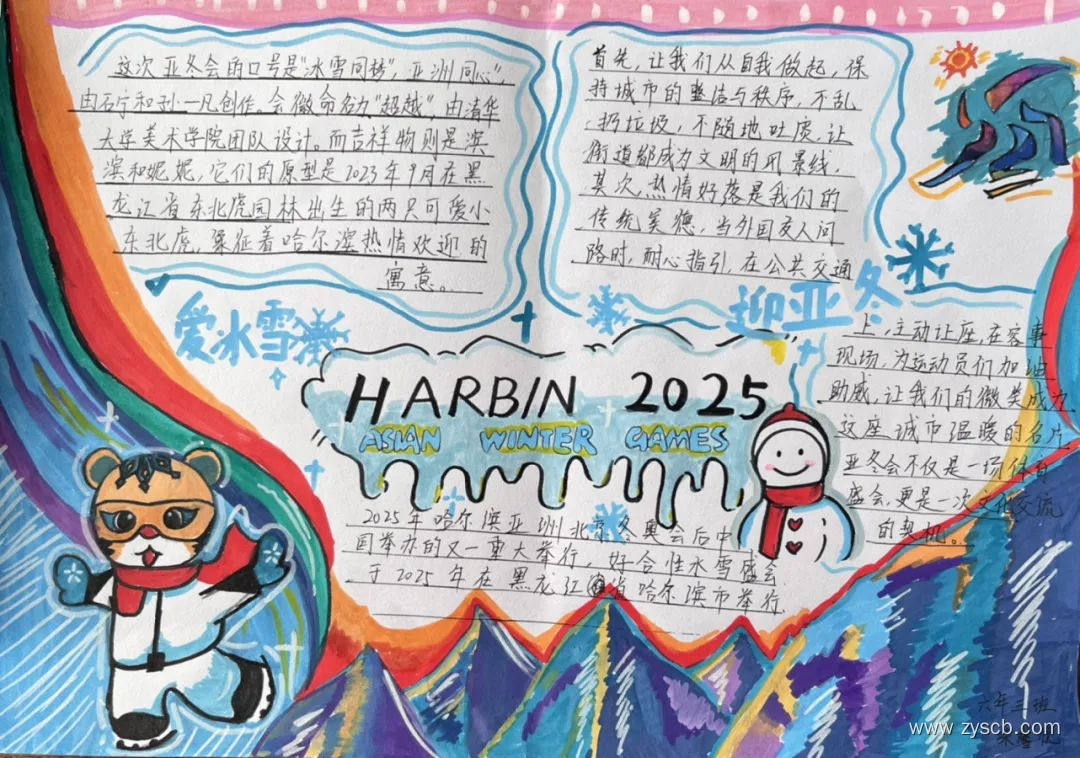 这次亚冬会的口号是"冰雪同梦，亚洲同心"
由石宁和孙一凡创作。会徽命名为"超越"，由清华
大学美术学院团队设计。而吉祥物则是滨
滨和妮妮，它们的原型是2023年9月在黑
龙江省东北虎园林出生的两只可爱小
东北虎，象征着哈尔滨热情欢迎的
寓意。
首先，让我们从自我做起，保
持城市的整洁与秩序，不乱
扔垃圾，不随地吐质，让
街道都成为文明的风景线，
其次，热情好落是我们的
传统美德，当外国友人问
路时，耐心指引，在公共交通
上，主动让座，在客事
现场，为运动员们加油
助威，让我们的微笑成为
这座城市温暖的名片
亚冬会不仅是一场体育
盛会，更是一次文化交流
的契机。
爱冰雪
迎亚冬
HARBIN 2025
ASIAN WINTER GAMES
2025年哈尔滨亚洲北京冬奥会后中
国举办的又一重大举行，好合性冰雪盛会
于2025年在黑龙江省哈尔滨市举行.
六年三班
www.zyscb.com